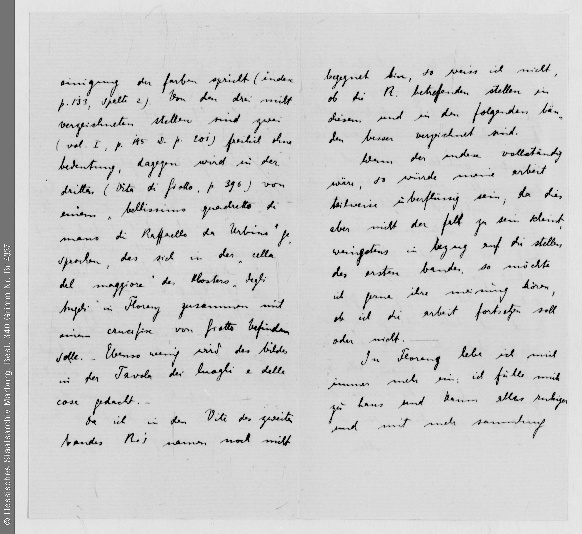 einigung der farben spricht (index
p. 133, spalte 2). Von den drei nicht
verzeichneten stellen sind zwei
(vol. I, p. 195 & p. 201) freilich ohne
bedeutung, dagegen wird in der
dritten (Vita di Giotto, p 396) von
einem „bellissimo quadretto di
mano di Raffaello da Urbino" ge,
sprochen, das sich in der „cella
del maggiore" des Klosters degli
Angeli in Florenz zusammen mit
einem crucifix von Giotto befinden
solle. – Ebenso wenig wird des bildes
in der Tavola dei luoghi e delle
cose gedacht. –
Da ich in den Vite des zweiten
bandes R's namen noch nicht
begegnet bin, so weiss ich nicht,
ob die R. betreffenden stellen in
diesem und in den folgenden bän,
den besser verzeichnet sind.
Wenn der index vollständig
wäre, so würde meine arbeit
teilweise überflüssig sein; da dies
aber nicht der fall zu sein scheint,
wenigstens in bezug auf die stellen
des ersten bandes, so möchte
ich gerne ihre meinung hören,
ob ich die arbeit fortsetzen soll
oder nicht.
In Florenz lebe ich mich
immer mehr ein; ich fühle mich
zu haus und kann alles ruhiger
und mit mehr sammlung
© Hessisches Staatsarchiv Marburg, Best. 340 Grimm Nr.